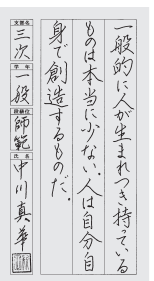 一般的に人が生まれつき持っている
ものは本当に少ない。人は自分自
身で創造するものだ。
支部名 三次 学年 一般 段級位 師範 氏名 中川真華